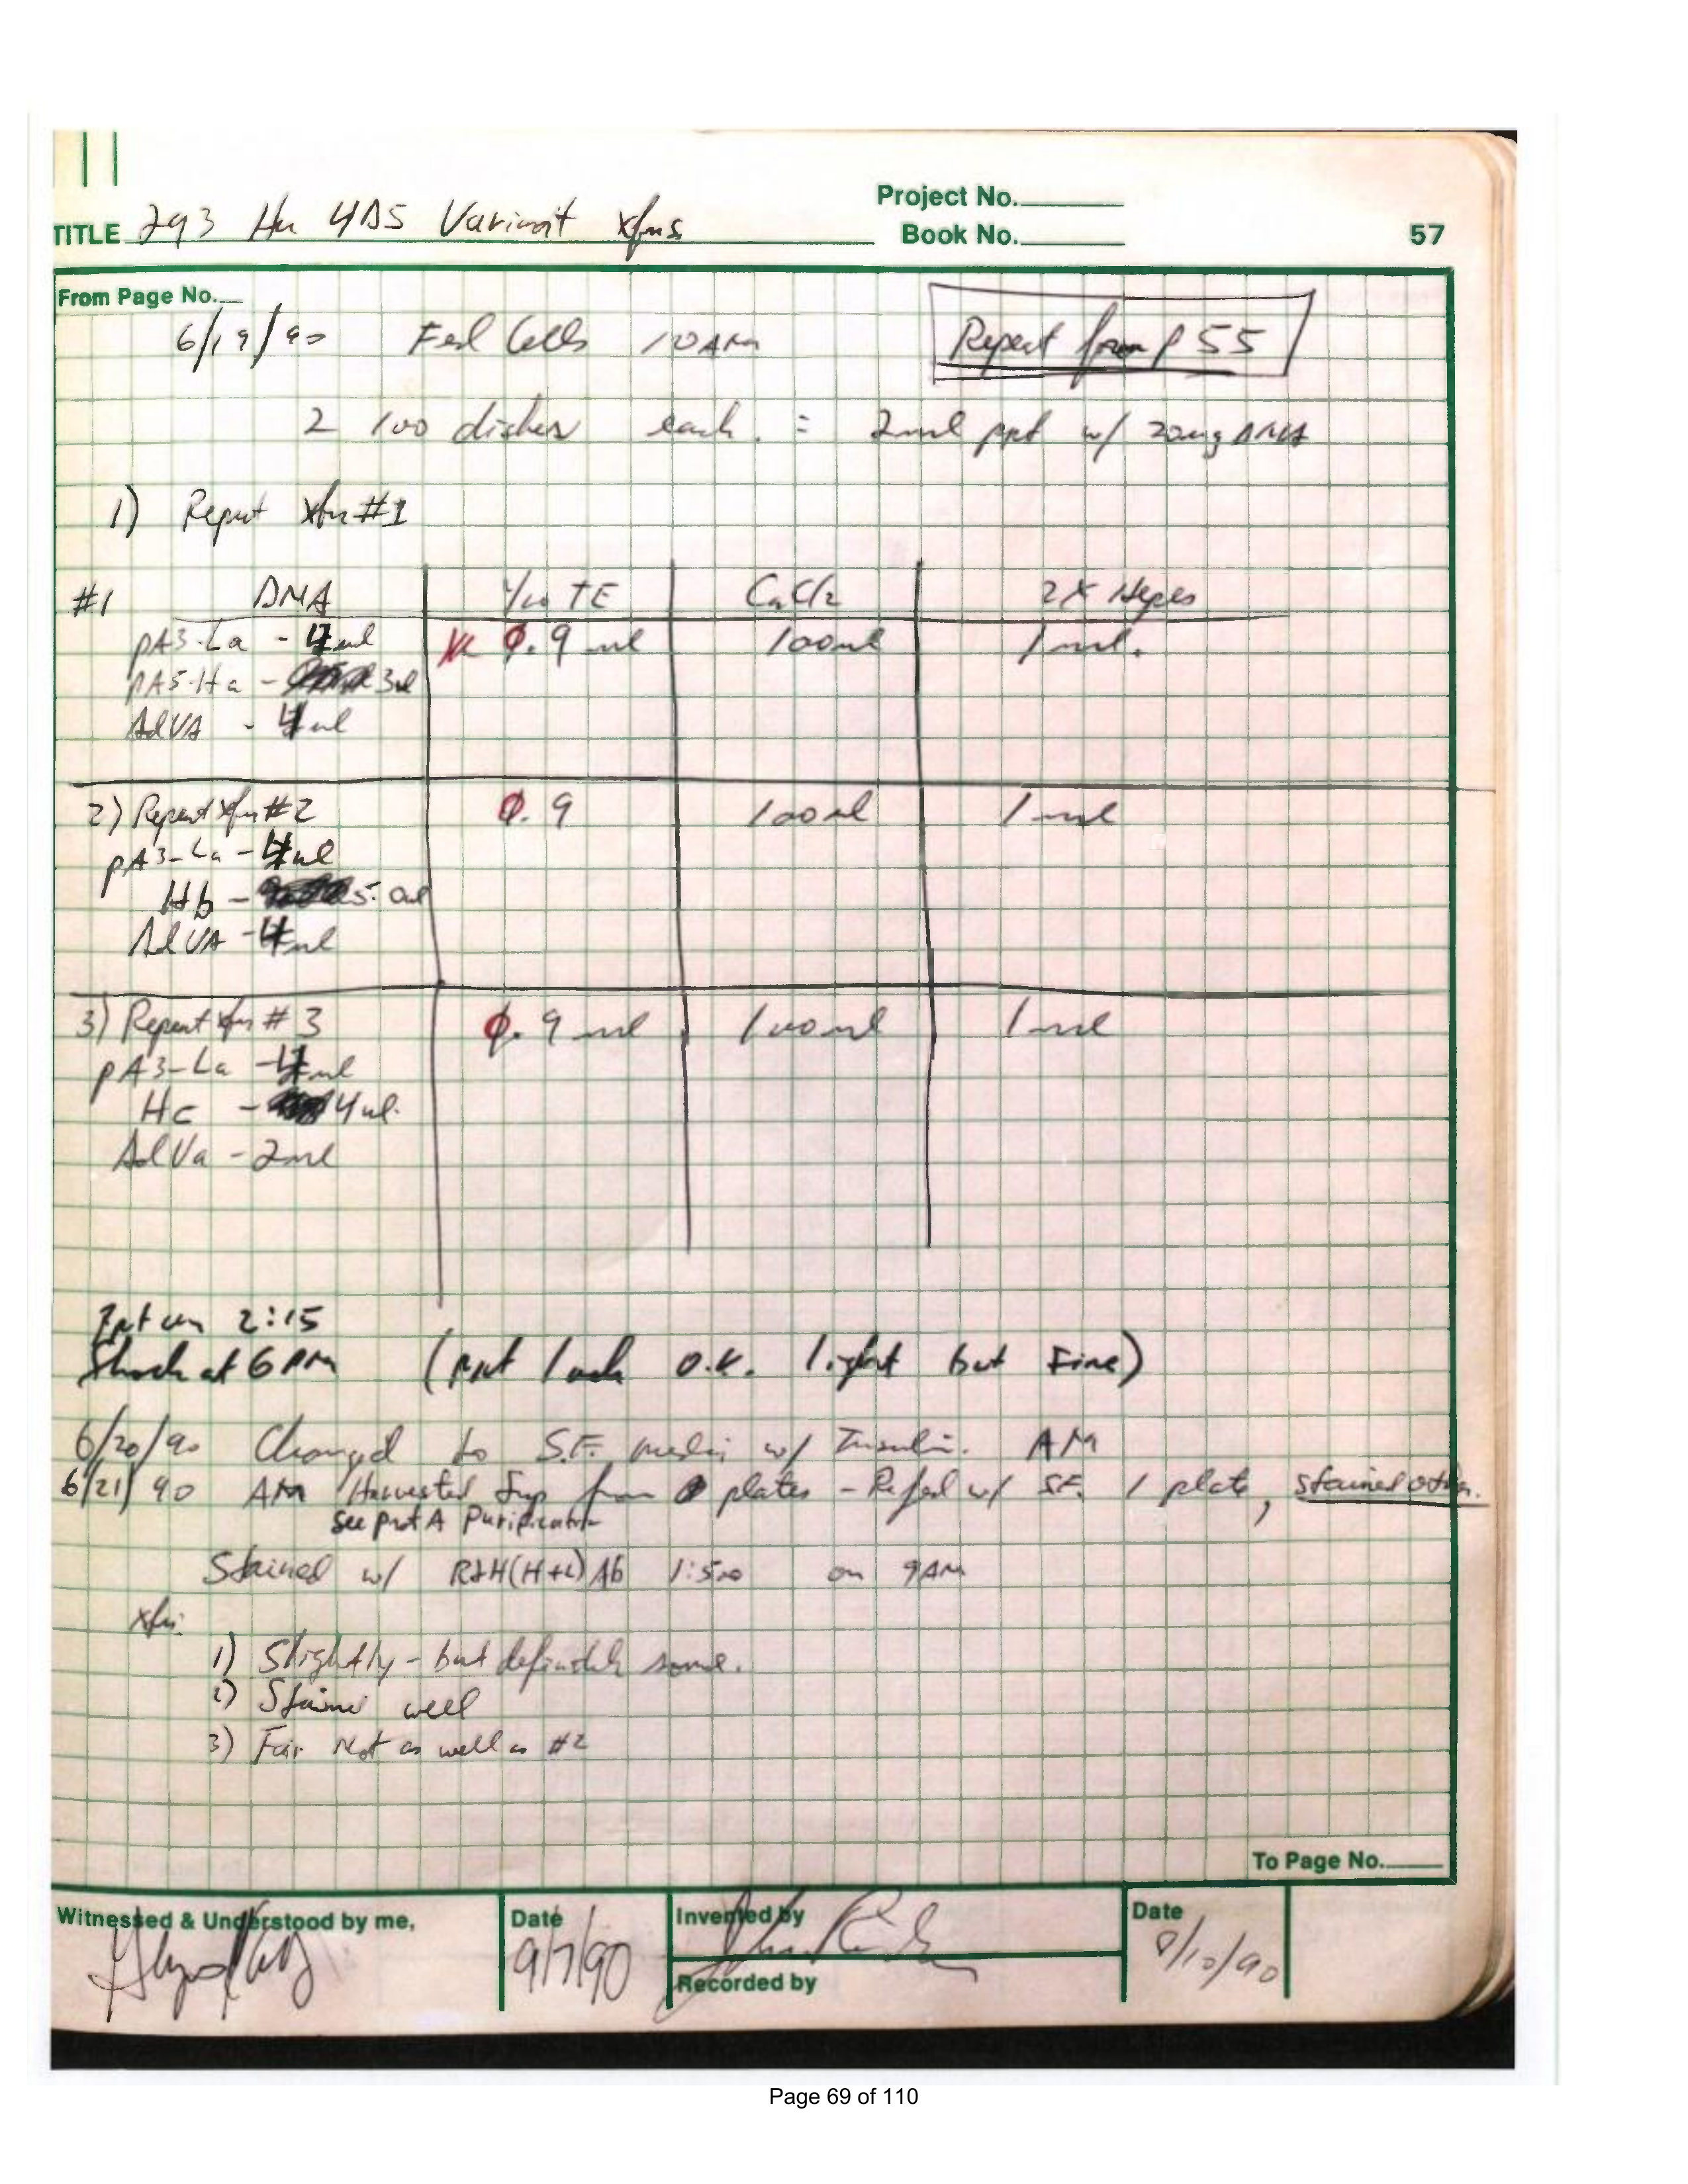 Project No.
TITLE 293 Hu 4D5 Variant xfns
Book No.
57
From Page No.
6/19/90 Fed Cells 10 AM
Repeat from p 55
2 100 dishes each. = 2ml ppt w/ 20ug DNA
1) Repeat xfn #1
#1 DNA 1/10 TE CaCl2 2X Hepes
pA3-La - 4ul 0.9 ml 100ul 1ml.
pA5-Ha - 3ul
AdVA - 4ul
2) Repeat xfn #2 0.9 100ul 1ml
pA3-La - 4ul
Hb - 5.0ul
AdVA - 4ul
3) Repeat xfn #3 0.9 ml 100ul 1ml
pA3-La - 4ul
Hc - 4ul.
AdVa - 2ul
Ppt on 2:15
Shock at 6 PM (ppt look o.k. light but Fine)
6/20/90 Changed to S.F. media w/ Insulin. AM
6/21/90 AM Harvested Sup from plates - Refed w/ SF. 1 plate, stained other.
See prot A Purification
Stained w/ RαH(H+L) Ab 1:500 on 9AM
xfn:
1) Slightly - but definitely some.
2) Stains well
3) Fair Not as well as #2
To Page No.
Witnessed & Understood by me,
Date
9/7/90
Invented by
Recorded by
Date
8/10/90
Page 69 of 110